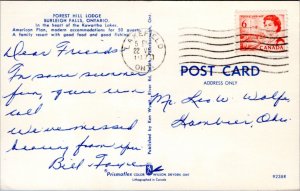 FOREST HILL LODGE
BURLEIGH FALLS, ONTARIO
In the heart of the Kawartha Lakes.
American Plan, modern accommodations for 50 guests.
A family resort with good food and good fishing.
Dear Friends
In some summer
fun, give us a
call
We've missed
hearing from you
Bill
LAKEFIELD
ONT
6
CANADA
POST CARD
ADDRESS ONLY
Mr. Leo W. Wolfe
Gambier, Ohio
Prismaflex COLOR BY WILSON, DRYDEN, ONT.
Lithographed in Canada
92388